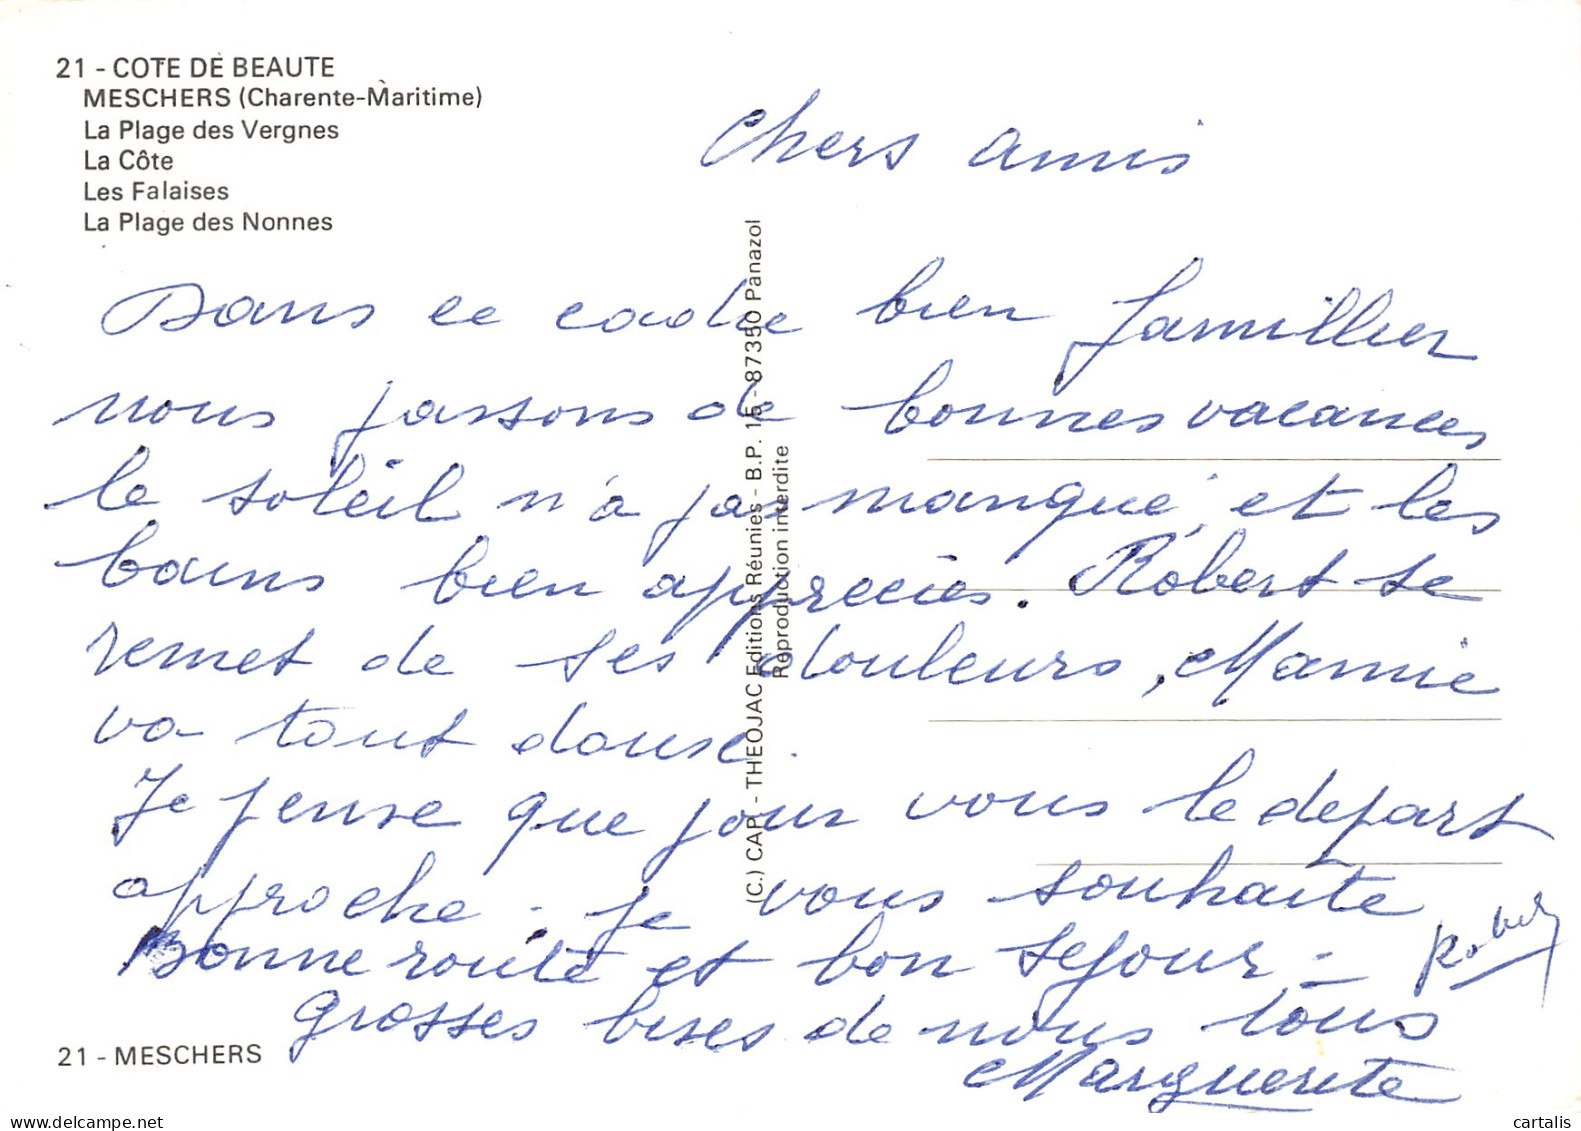 21 - COTE DE BEAUTE
MESCHERS (Charente-Maritime)
La Plage des Vergnes
La Côte
Les Falaises
La Plage des Nonnes
Chers amis
Dans ce cadre bien familier
nous passons de bonnes vacances
le soleil n'a pas manqué, et les
bains bien appréciés. Robert se
remet de ses douleurs, Mamie
va tout douc.
Je pense que pour vous le depart
approche. je vous souhaite
Bonne route et bon sejour -
grosses bises de nous tous
Marguerite
Robert
(C.) CAP. - THEOJAC Editions Réunies - B.P. 15 - 87350 Panazol
Reproduction interdite
21 - MESCHERS
www.delcampe.net
cartalis